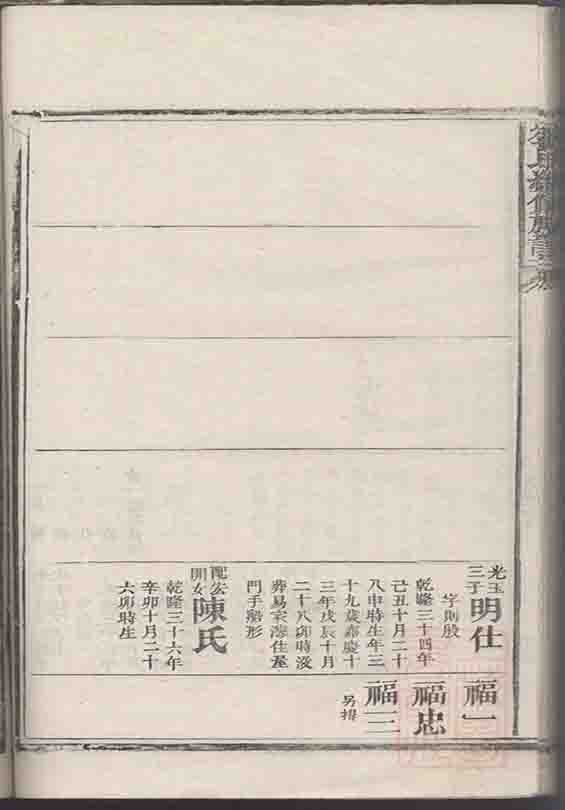 氏續修族譜
光玉
三子
明仕
字則殷
乾隆三十四年
己丑十月二十
八申時生年三
十九歲嘉慶十
三年戊辰十月
二十八卯時沒
葬易家灣住屋
門手形
配宏
開女
陳氏
乾隆三十六年
辛卯十月二十
六卯時生
福一
福忠
福三
另提